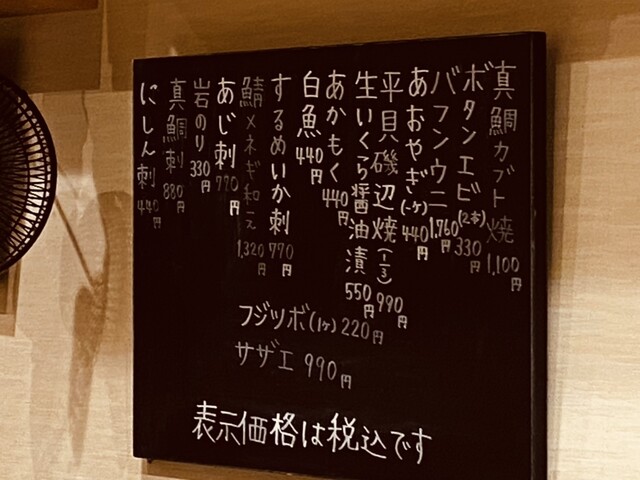 真鯛カブト焼 1,100円
ボタンエビ(2本) 330円
バフンウニ 1,760円
あおやぎ(一ヶ) 440円
平貝磯辺焼(1/3) 990円
生いくら醤油漬 550円
あかもく 440円
白魚 440円
するめいか刺 770円
鯖メネギ和え 1,320円
あじ刺 770円
岩のり 330円
真鯛刺 880円
にしん刺 440円
フジツボ(1ヶ) 220円
サザエ 990円
表示価格は税込です